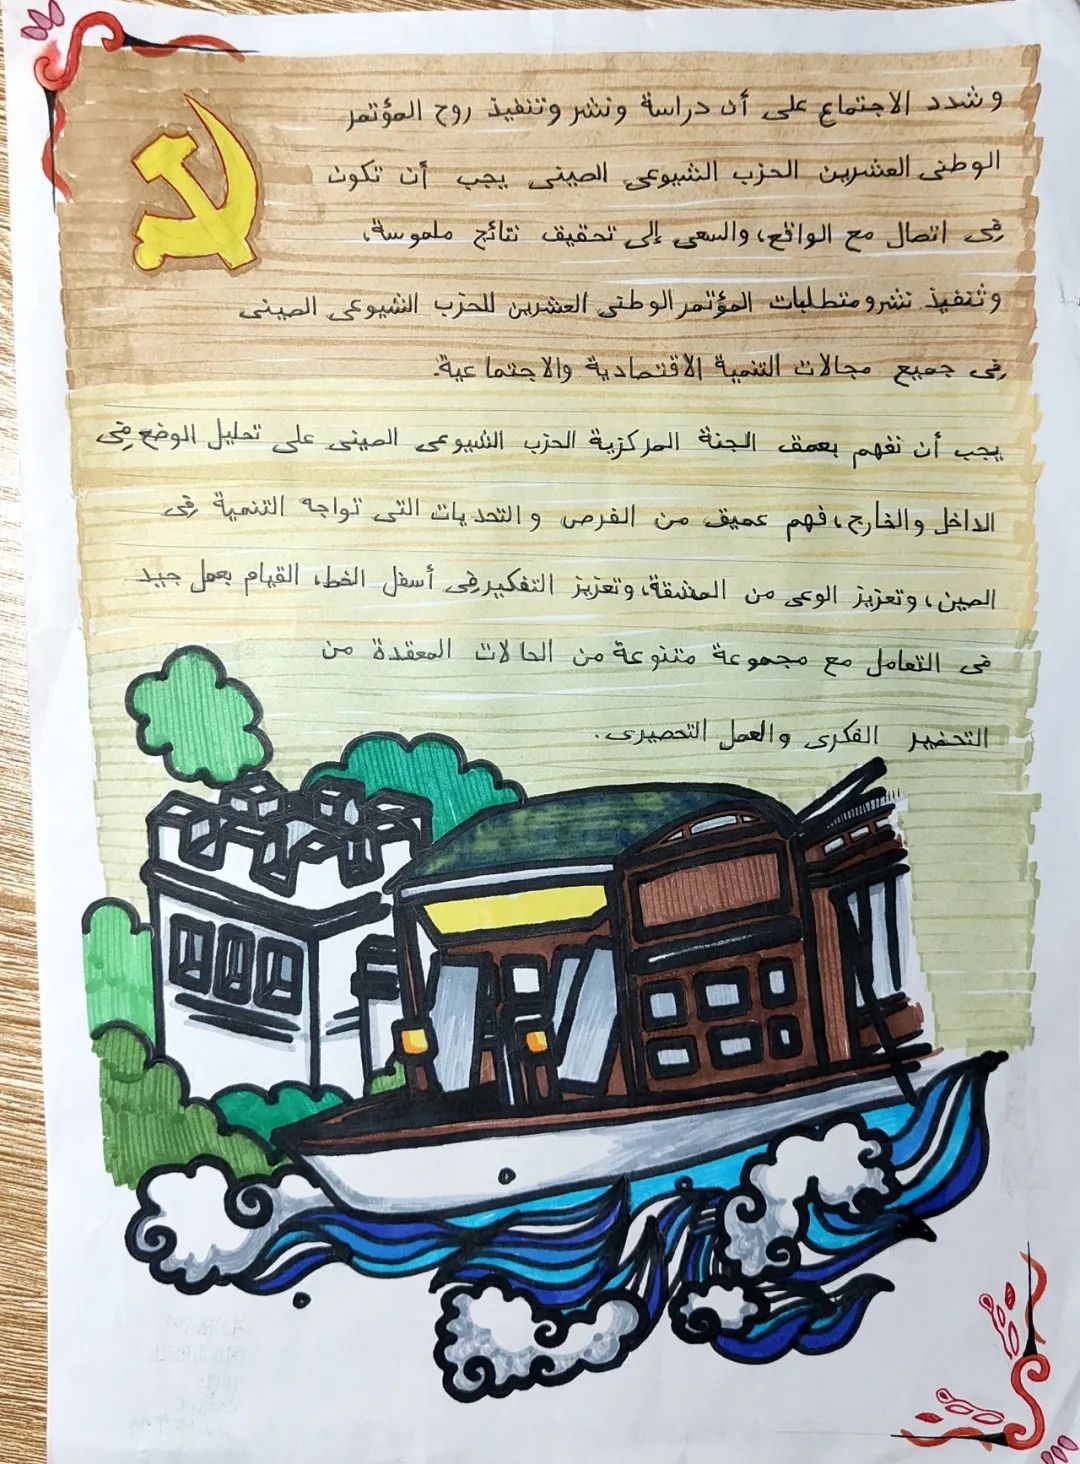 وشدد الاجتماع على أن دراسة ونشر وتنفيذ روح المؤتمر
الوطنى العشرين الحزب الشيوعى الصينى يجب أن تكون
فى اتصال مع الواقع، والسعى إلى تحقيق نتائج ملموسة،
وتنفيذ نشر ومتطلبات المؤتمر الوطنى العشرين للحزب الشيوعى الصينى
فى جميع مجالات التنمية الاقتصادية والاجتماعية.
يجب أن نفهم بعمق الجنة المركزية الحزب الشيوعى الصينى على تحليل الوضع فى
الداخل والخارج، فهم عميق من الفرص والتحديات التى تواجه التنمية فى
الصين، وتعزيز الوعى من المشقة، وتعزيز التفكير فى أسفل الخط، القيام بعمل جيد
فى التعامل مع مجموعة متنوعة من الحالات المعقدة من
التحضير الفكرى والعمل التحصيرى.